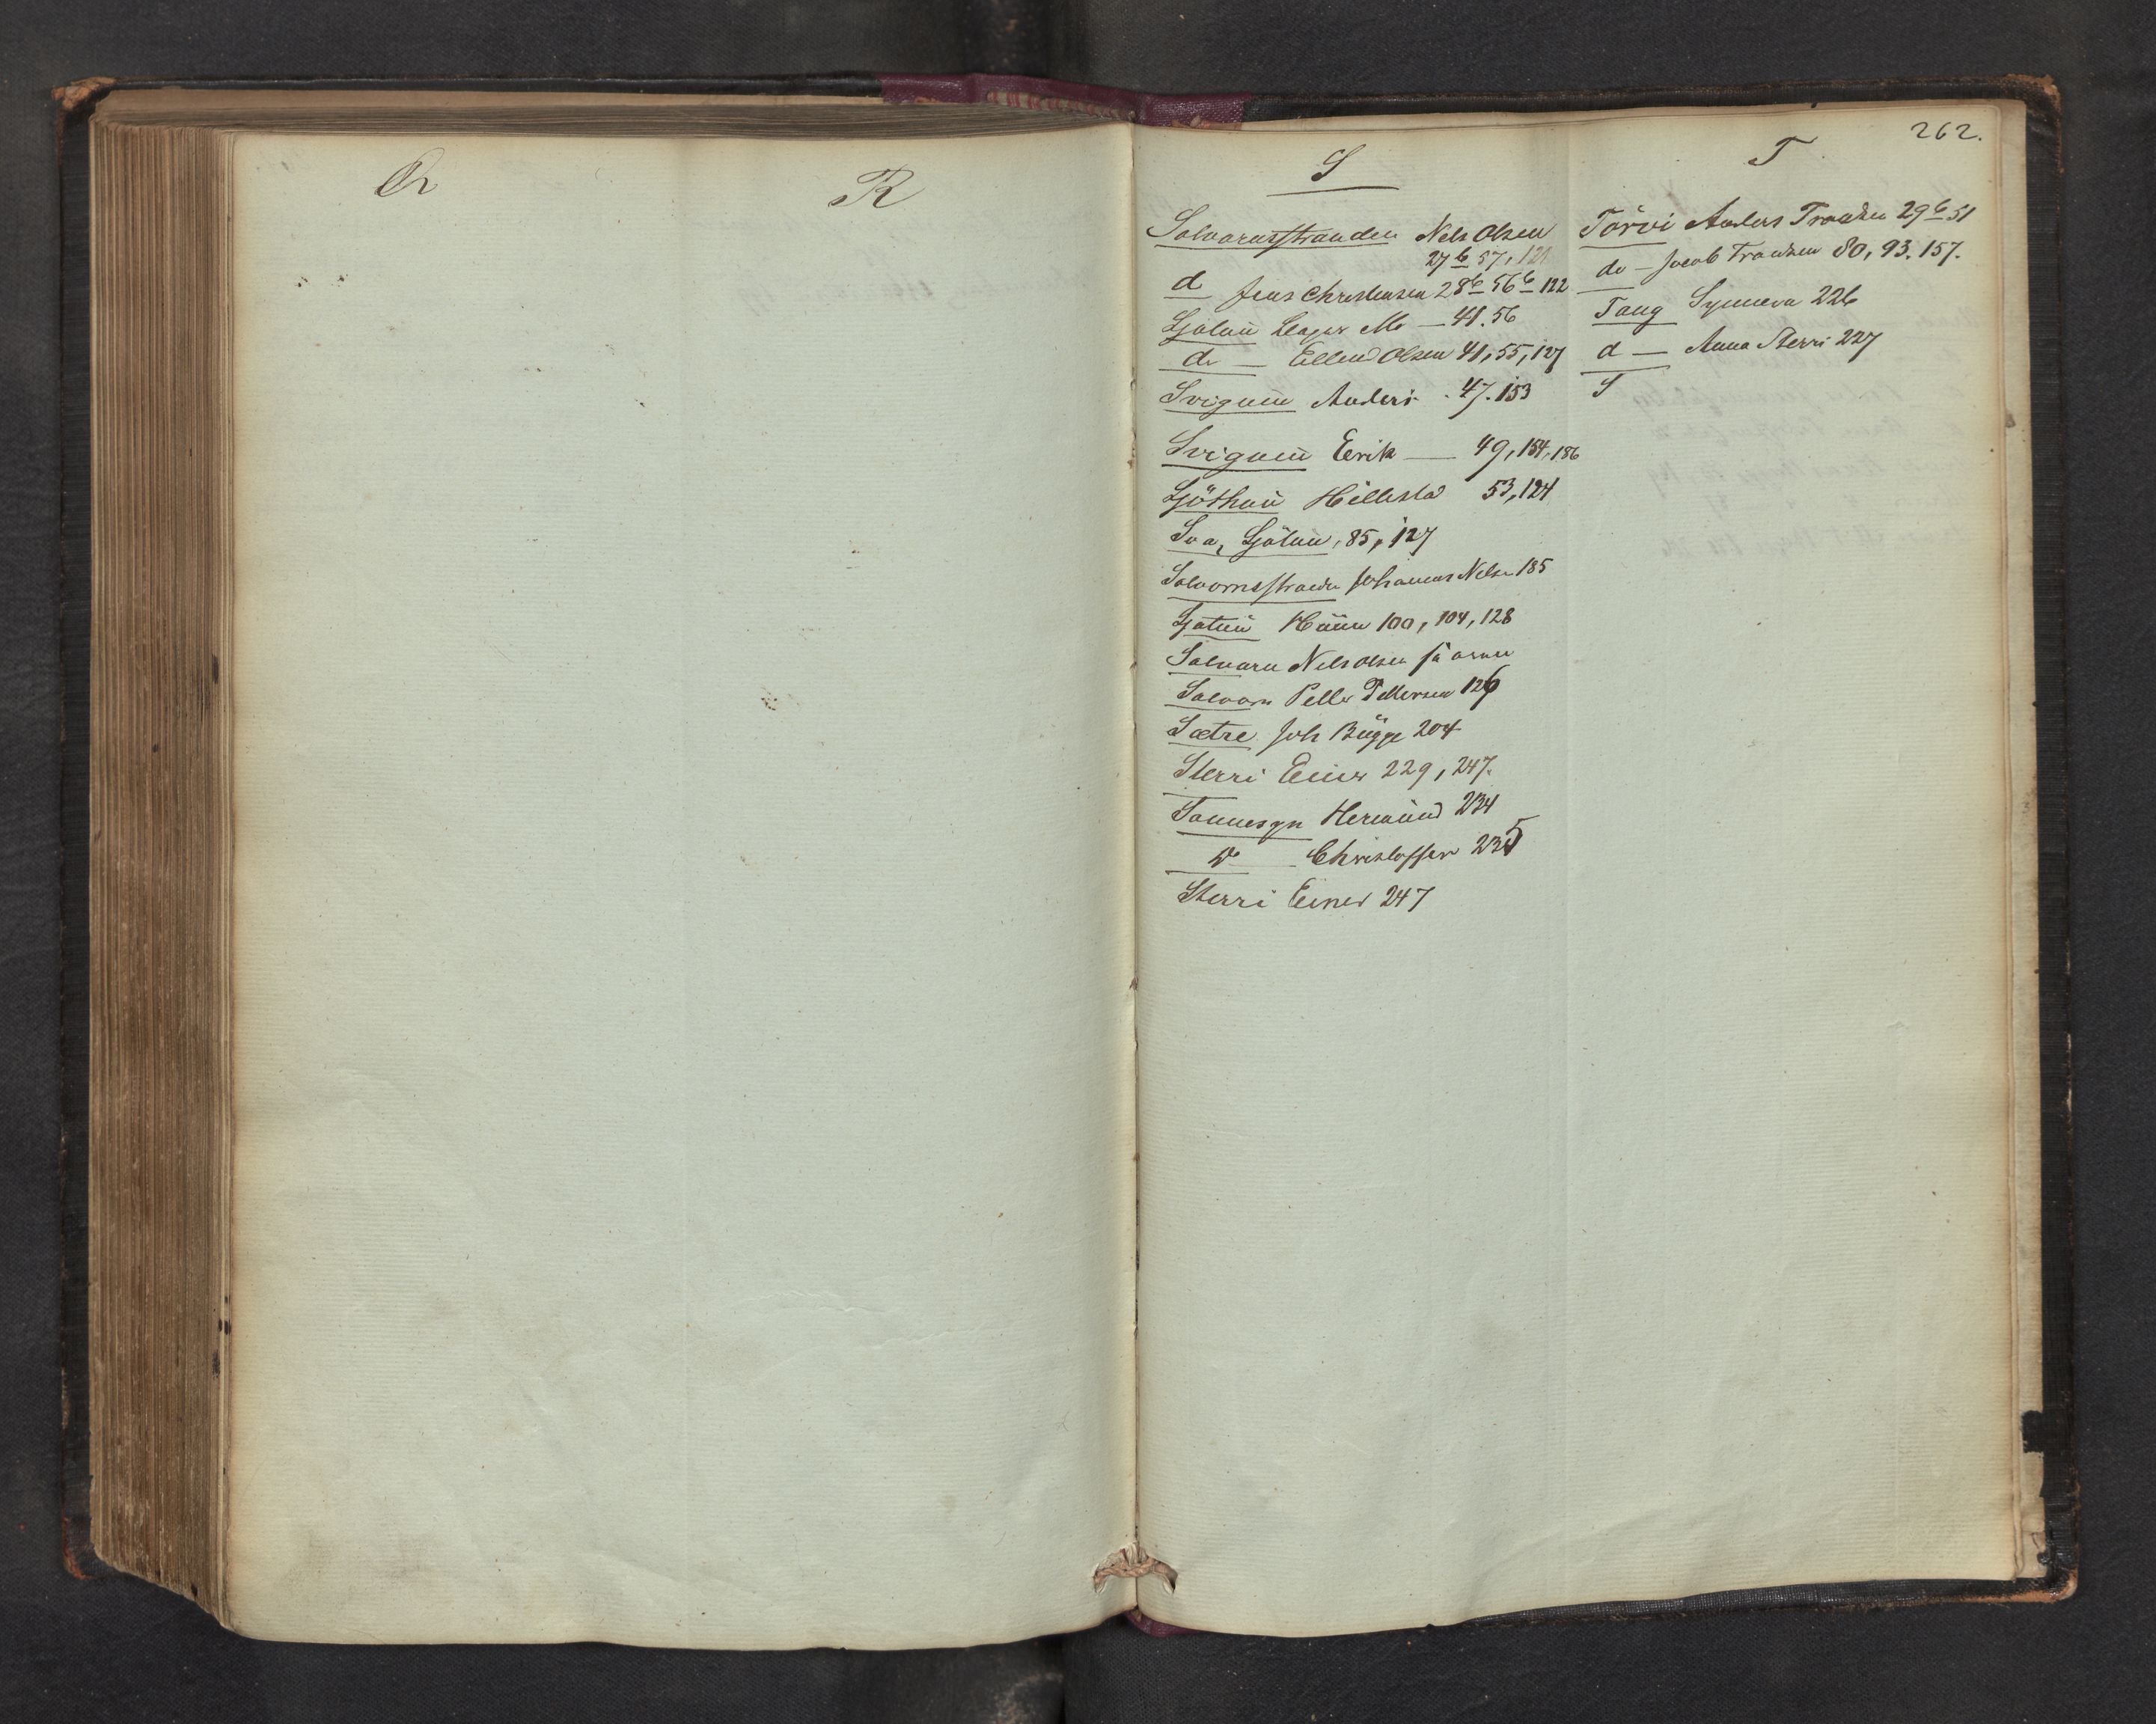 Q
R
262.
S
Solvornsstranden Nels Olsen
27 b 57, 121
d Jens Christensen 28 b 56 b 122
Sjøtun Lasse Mo — 41. 56
do — Ellend Olsen 41, 55, 127
Svigum Anders. 47. 153
Svigum Eerik — 49, 154, 186
Sjöthun Hillestad 53, 124
Sva, Sjötun, 85, 127
Solvornsstranden Johannes Nelsen 185
Sjøtun 100, 104, 128
Solvorn Nels Olsen
Solvorn Petter Pettersen 126
Sætre Joh Bügge 204
Sterri Einer 229, 247.
Hermünd 234
do Christoffer 235
Sterri Einer 247
T
Törvi Anders Trondsen 29 b 51
do — Jacob Trondsen 80, 93. 157.
Taug Synneva 226
d — Anna Sterri 227
S